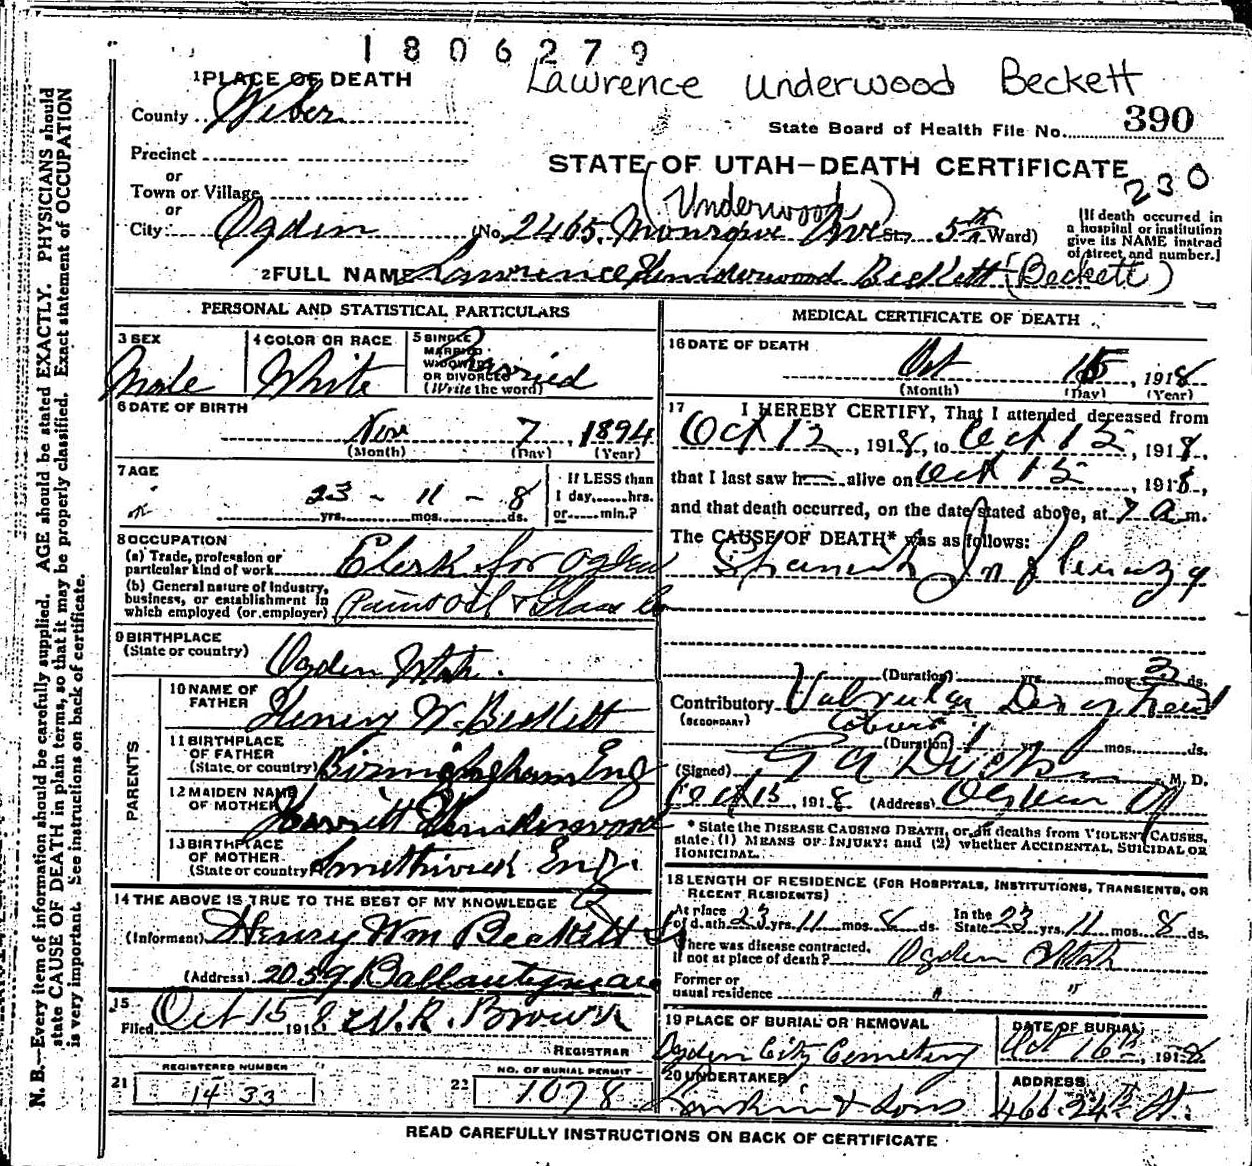 1806279
Lawrence Underwood Beckett
1 PLACE OF DEATH
County Weber
State Board of Health File No. 390
Precinct
or
Town or Village
or
STATE OF UTAH—DEATH CERTIFICATE
230
(Underwood)
City Ogden (No. 2465 Monroe Ave St; 5th Ward)
[If death occurred in
a hospital or institution
give its NAME instead
of street and number.]
2 FULL NAME Lawrence Beckett (Beckett)
PERSONAL AND STATISTICAL PARTICULARS
3 SEX
Male
4 COLOR OR RACE
White
5 SINGLE
MARRIED
WIDOWED
OR DIVORCED
(Write the word)
Married
6 DATE OF BIRTH
Nov 7, 1894
(Month) (Day) (Year)
7 AGE
23 - 11 - 8
yrs. mos. ds.
If LESS than
1 day,......hrs.
or......min.?
8 OCCUPATION
(a) Trade, profession or
particular kind of work Clerk for Ogden
(b) General nature of industry,
business, or establishment in
which employed (or employer) Paint Oil & Glass Co
9 BIRTHPLACE
(State or country)
Ogden Utah.
PARENTS
10 NAME OF
FATHER
Henry W. Beckett
11 BIRTHPLACE
OF FATHER
(State or country) Birmingham Eng
12 MAIDEN NAME
OF MOTHER
Harriett
13 BIRTHPLACE
OF MOTHER
(State or country) Smethwick Eng.
14 THE ABOVE IS TRUE TO THE BEST OF MY KNOWLEDGE
(Informant) Henry Wm Beckett
(Address) 2039
15
Filed Oct 15 1918 W. R. Brown
REGISTRAR
REGISTERED NUMBER
21 1433
NO. OF BURIAL PERMIT
22 1078
MEDICAL CERTIFICATE OF DEATH
16 DATE OF DEATH
Oct 15, 1918
(Month) (Day) (Year)
17 I HEREBY CERTIFY, That I attended deceased from
Oct 12, 1918, to Oct 15, 1918,
that I last saw h alive on Oct 15, 1918,
and that death occurred, on the date stated above, at 7 a m.
The CAUSE OF DEATH* was as follows:
Spanish Influenza
(Duration) yrs. mos. 3 ds.
Contributory Valvular Dis of Heart
(SECONDARY)
(Duration) yrs. mos. ds.
(Signed) M. D.
Oct 15, 1918 (Address) Ogden
* State the DISEASE CAUSING DEATH, or, in deaths from VIOLENT CAUSES,
state (1) MEANS OF INJURY; and (2) whether ACCIDENTAL, SUICIDAL OR
HOMICIDAL.
18 LENGTH OF RESIDENCE (FOR HOSPITALS, INSTITUTIONS, TRANSIENTS, OR
RECENT RESIDENTS)
At place
of death 23 yrs. 11 mos. 8 ds. In the State 23 yrs. 11 mos. 8 ds.
Where was disease contracted,
if not at place of death? Ogden Utah
Former or
usual residence " "
19 PLACE OF BURIAL OR REMOVAL
Ogden City Cemetery
DATE OF BURIAL
Oct 16th, 1918
20 UNDERTAKER
Larkin & Sons
ADDRESS
466 24th St.
READ CAREFULLY INSTRUCTIONS ON BACK OF CERTIFICATE
N. B.—Every item of information should be carefully supplied. AGE should be stated EXACTLY. PHYSICIANS should
state CAUSE OF DEATH in plain terms, so that it may be properly classified. Exact statement of OCCUPATION
is very important. See instructions on back of certificate.